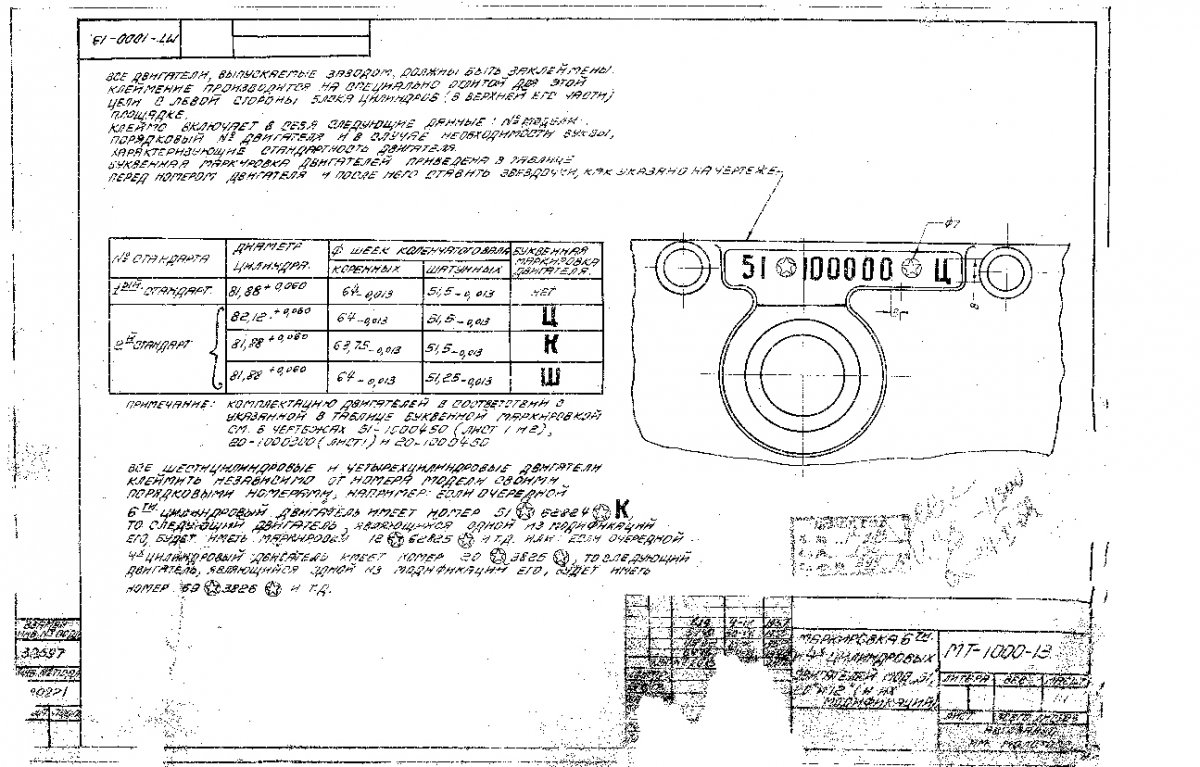 МТ-1000-13
ВСЕ ДВИГАТЕЛИ, ВЫПУСКАЕМЫЕ ЗАВОДОМ, ДОЛЖНЫ БЫТЬ ЗАКЛЕЙМЕНЫ.
КЛЕЙМЕНИЕ ПРОИЗВОДИТСЯ НА СПЕЦИАЛЬНО ОТЛИТОЙ ДЛЯ ЭТОЙ
ЦЕЛИ С ЛЕВОЙ СТОРОНЫ БЛОКА ЦИЛИНДРОВ (В ВЕРХНЕЙ ЕГО ЧАСТИ)
ПЛОЩАДКЕ.
КЛЕЙМО ВКЛЮЧАЕТ В СЕБЯ СЛЕДУЮЩИЕ ДАННЫЕ: № МОДЕЛИ,
ПОРЯДКОВЫЙ № ДВИГАТЕЛЯ И В СЛУЧАЕ НЕОБХОДИМОСТИ БУКВЫ,
ХАРАКТЕРИЗУЮЩИЕ СТАНДАРТНОСТЬ ДВИГАТЕЛЯ.
БУКВЕННАЯ МАРКИРОВКА ДВИГАТЕЛЕЙ ПРИВЕДЕНА В ТАБЛИЦЕ
ПЕРЕД НОМЕРОМ ДВИГАТЕЛЯ И ПОСЛЕ НЕГО СТАВИТЬ ЗВЕЗДОЧКИ, КАК УКАЗАНО НА ЧЕРТЕЖЕ
Ф7
51 100000 Ц
8
№ СТАНДАРТА
ДИАМЕТР ЦИЛИНДРА.
Ф ШЕЕК КОЛЕНЧАТОГО ВАЛА
БУКВЕННАЯ МАРКИРОВКА ДВИГАТЕЛЯ.
КОРЕННЫХ ШАТУННЫХ
1ЫЙ СТАНДАРТ. 81,88+0,060 64-0,013 51,5-0,013 НЕТ
82,12+0,060 64-0,013 51,5-0,013 Ц
2Й СТАНДАРТ 81,88+0,060 63,75-0,013 51,5-0,013 К
81,88+0,060 64-0,013 51,25-0,013 Ш
ПРИМЕЧАНИЕ: КОМПЛЕКТАЦИЮ ДВИГАТЕЛЕЙ В СООТВЕТСТВИИ С
УКАЗАННОЙ В ТАБЛИЦЕ БУКВЕННОЙ МАРКИРОВКОЙ
СМ. В ЧЕРТЕЖАХ 51-1000450 (ЛИСТ 1 И 2),
20-1000300 (ЛИСТ 1) И 20-1000450
ВСЕ ШЕСТИЦИЛИНДРОВЫЕ И ЧЕТЫРЕХЦИЛИНДРОВЫЕ ДВИГАТЕЛИ
КЛЕЙМИТЬ НЕЗАВИСИМО ОТ НОМЕРА МОДЕЛИ СВОИМИ
ПОРЯДКОВЫМИ НОМЕРАМИ, НАПРИМЕР: ЕСЛИ ОЧЕРЕДНОЙ
6ТИ ЦИЛИНДРОВЫЙ ДВИГАТЕЛЬ ИМЕЕТ НОМЕР 51 62824 К
ТО СЛЕДУЮЩИЙ ДВИГАТЕЛЬ, ЯВЛЯЮЩИЙСЯ ОДНОЙ ИЗ МОДИФИКАЦИЙ
ЕГО, БУДЕТ ИМЕТЬ МАРКИРОВКУ 12 62825 И Т.Д. ИЛИ ЕСЛИ ОЧЕРЕДНОЙ
4Х ЦИЛИНДРОВЫЙ ДВИГАТЕЛЬ ИМЕЕТ НОМЕР 20 3825, ТО СЛЕДУЮЩИЙ
ДВИГАТЕЛЬ, ЯВЛЯЮЩИЙСЯ ОДНОЙ ИЗ МОДИФИКАЦИЙ ЕГО, БУДЕТ ИМЕТЬ
НОМЕР 69 3826 И Т.Д.
33597
МАРКИРОВКА 6ТИ
4Х ЦИЛИНДРОВЫХ
ДВИГАТЕЛЕЙ МОД. 51,
(И ИХ
МОДИФИКАЦИЙ)
МТ-1000-13
ЛИТЕРА ВЕС
1:1
ЛИСТ